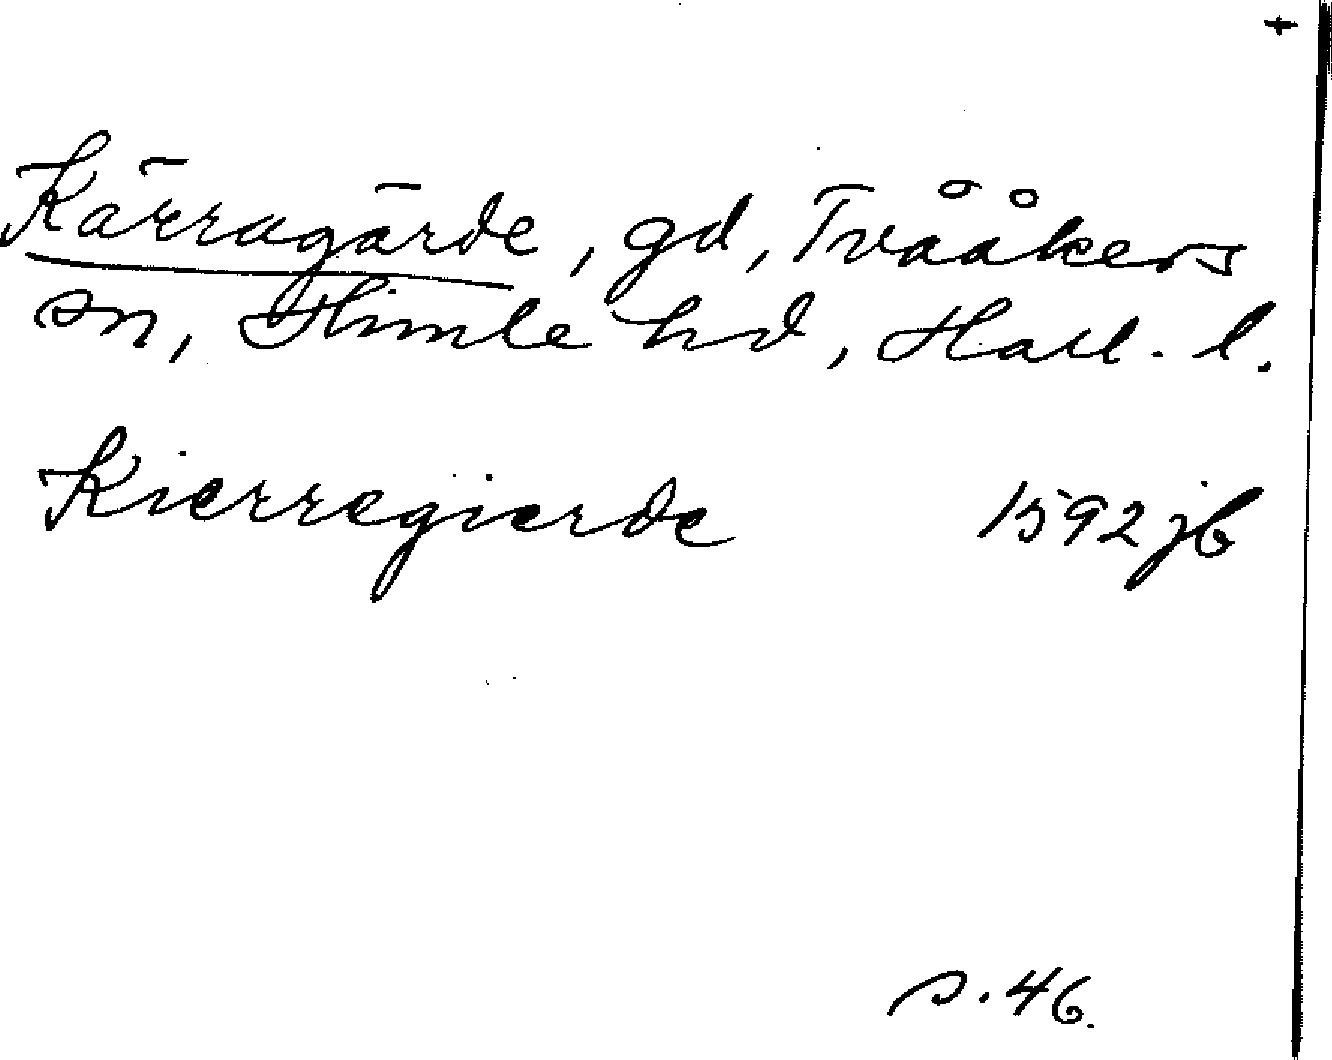 +
Kärragärde, gd, Tvååkers
sn, Himle hd, Hall. l.
Kierregierde 1592 jb
s. 46.